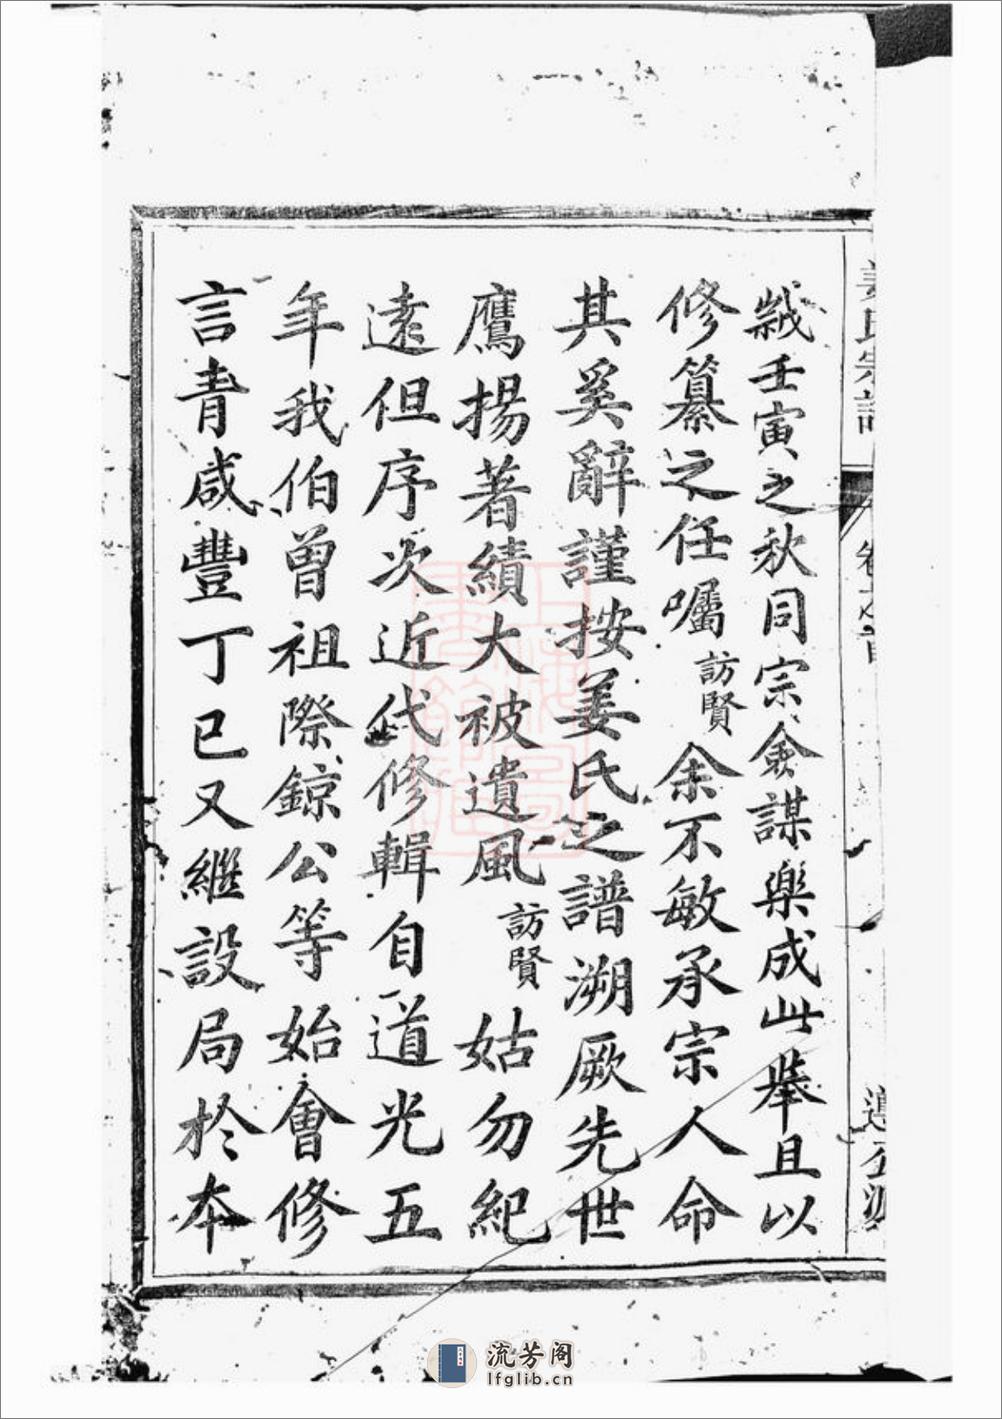 姜氏宗譜
卷之首
緎壬寅之秋同宗僉謀樂成此舉且以
修纂之任囑訪賢余不敏承宗人命
其奚辭謹按姜氏之譜溯厥先世
鷹揚著績大被遺風訪賢姑勿紀
遠但序次近代修輯自道光五
年我伯曾祖際鍄公等始會修
言青咸豐丁巳又繼設局於本
流芳阁
lfglib.cn